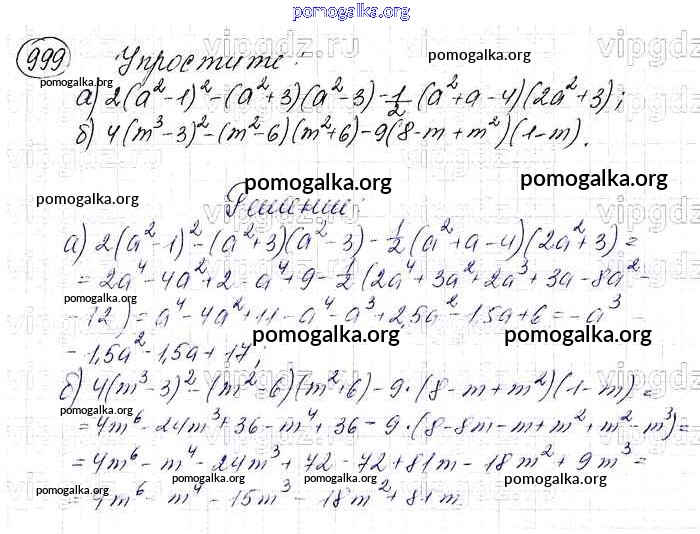 pomogalka.org
999 Упростите:
pomogalka.org
pomogalka.org
а) 2(a²-1)²-(a²+3)(a²-3)-1/2(a²+a-4)(2a²+3);
б) 4(m³-3)²-(m²-6)(m²+6)-9(8-m+m²)(1-m).
pomogalka.org
pomogalka.org
pomogalka.org
Решение:
а) 2(a²-1)²-(a²+3)(a²-3)-1/2(a²+a-4)(2a²+3)=
=2a⁴-4a²+2-a⁴+9-1/2(2a⁴+3a²+2a³+3a-8a²-
pomogalka.org
-12)=a⁴-4a²+11-a⁴-a³+2,5a²-1,5a+6=-a³-
pomogalka.org
pomogalka.org
-1,5a²-1,5a+17;
б) 4(m³-3)²-(m²-6)(m²+6)-9·(8-m+m²)(1-m)=
pomogalka.org
pomogalka.org
=4m⁶-24m³+36-m⁴+36-9·(8-8m-m+m²+m²-m³)=
=4m⁶-m⁴-24m³+72-72+81m-18m²+9m³=
pomogalka.org
pomogalka.org
pomogalka.org
=4m⁶-m⁴-15m³-18m²+81m